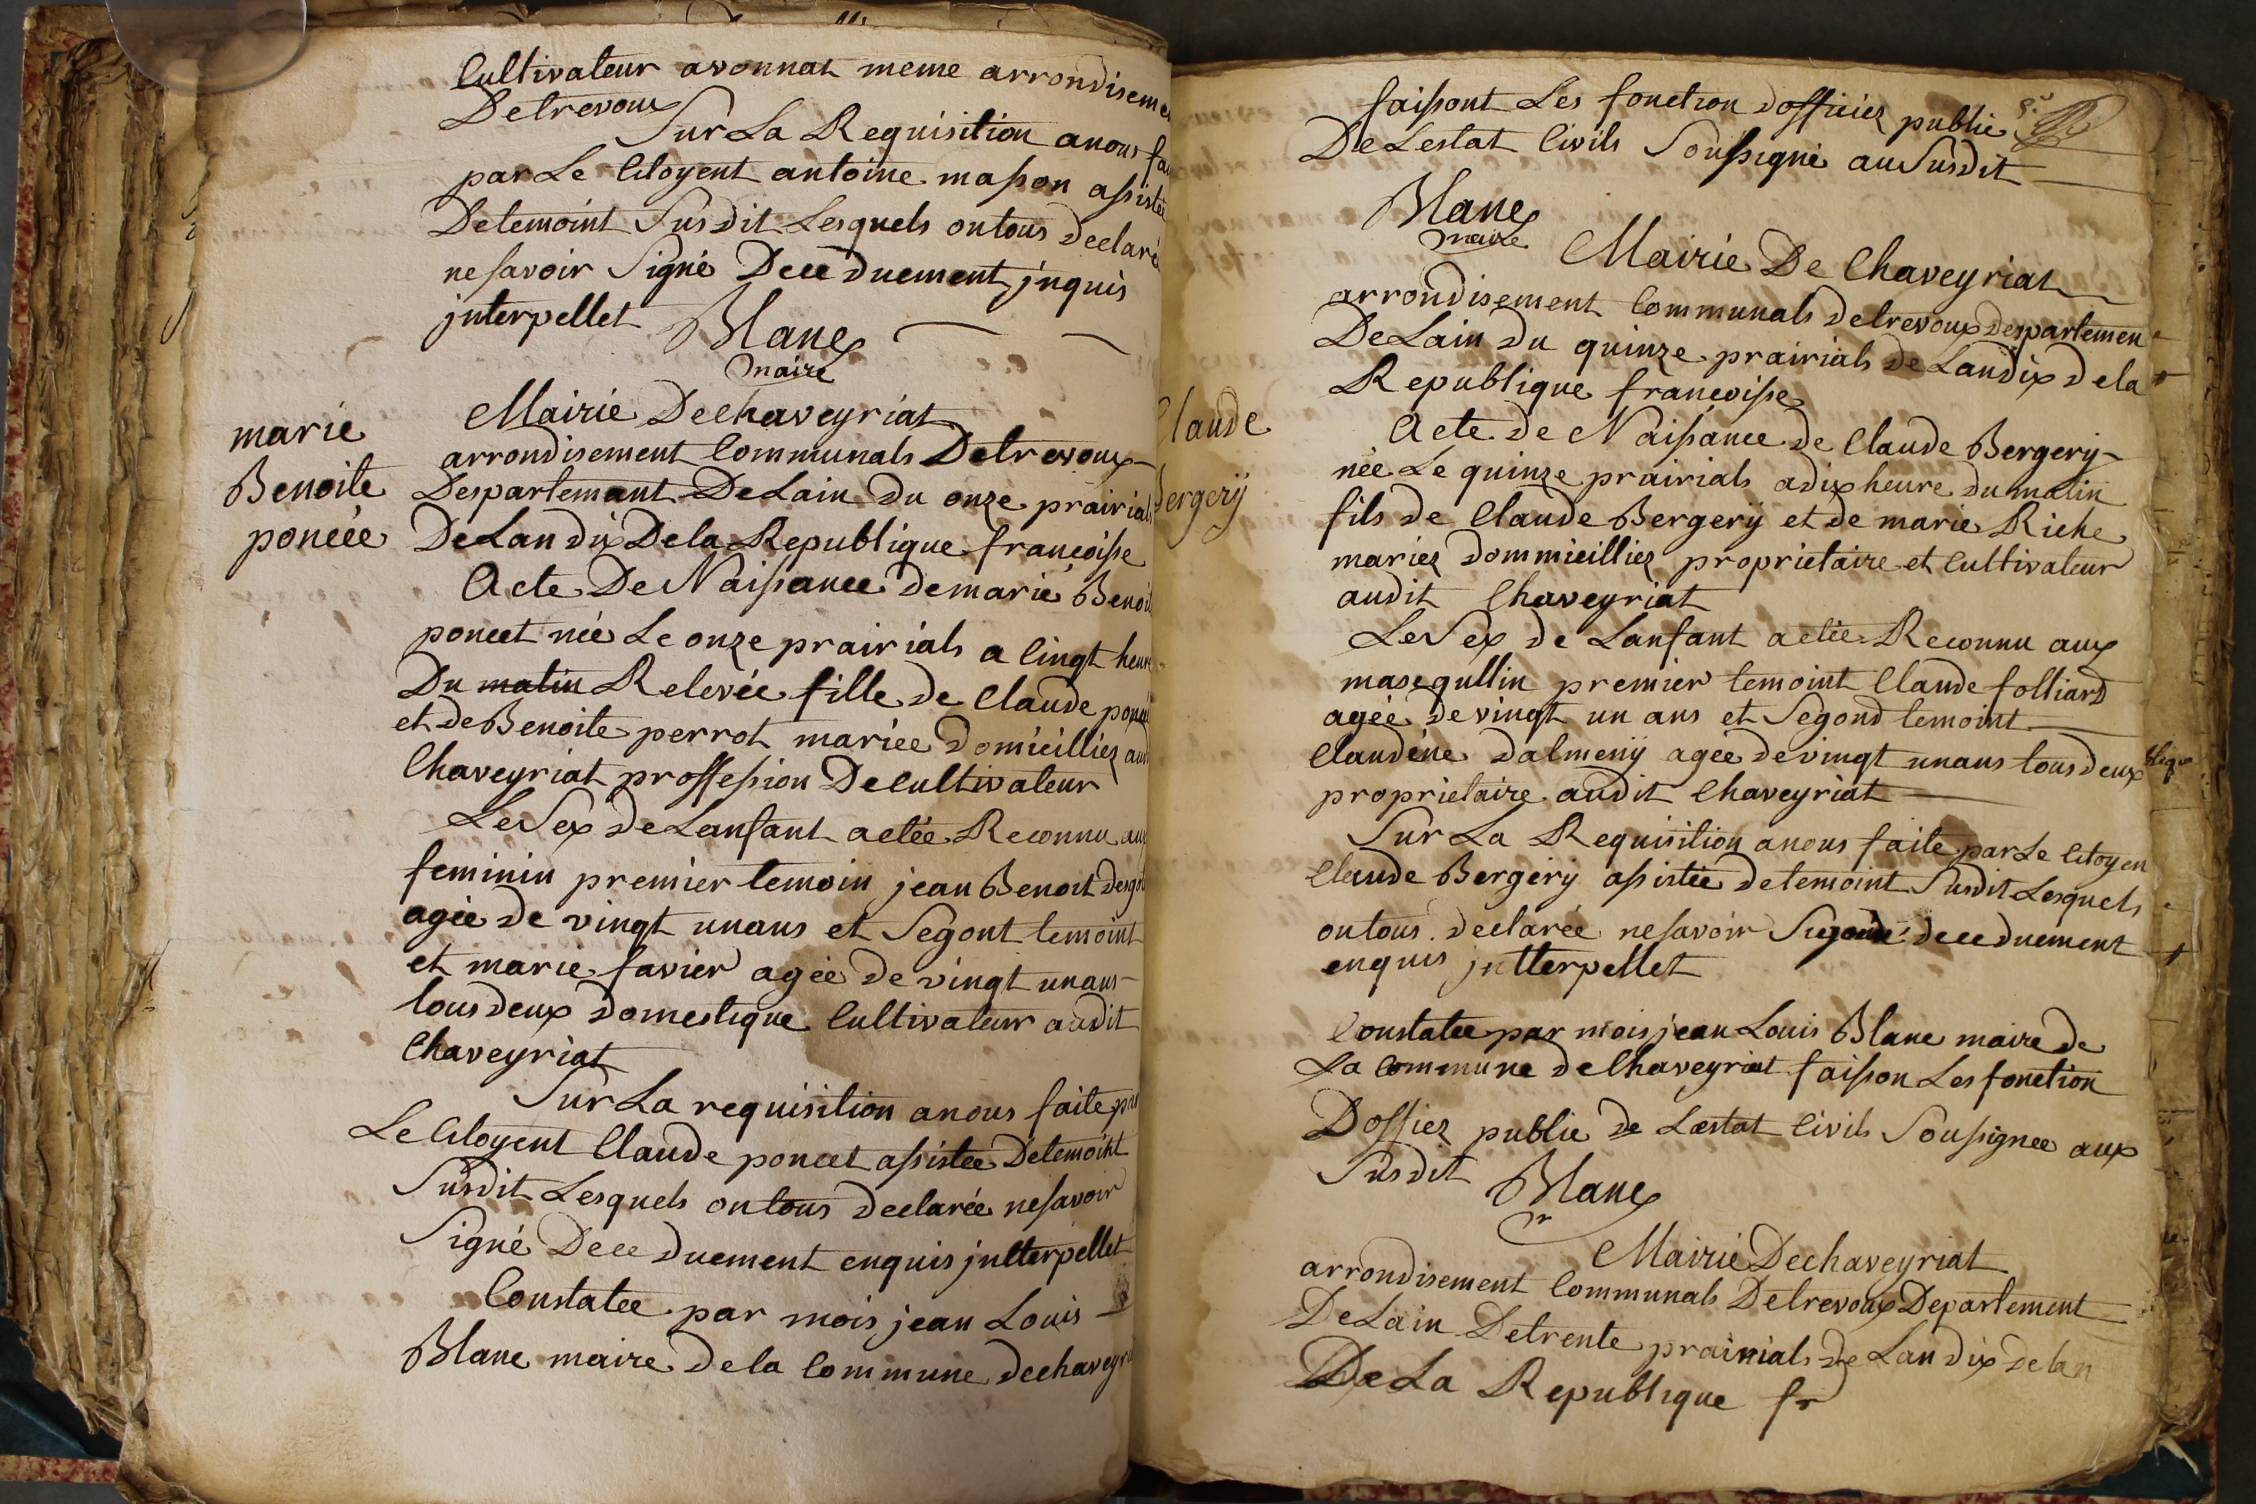 Cultivateur avonnat meme arrondiseme
Detrevoux
Sur La Requisition anous fai
par Le Citoyent antoine mason asistée
Detemoint Susdit Lesquels ontous declaré
nesavoir Signé Dece duement jnquis
jnterpellet
Blanc
maire
Mairie Dechaveyriat
marie
Benoite
poncée
arrondisement Communals Detrevoux
Despartemant DeLain Du onze prairials
DeLan dix Dela Republique francoisse
Acte De Naissance demarie Benoit
poncet née Le onze prairials a Cingt heure
Du matin Relevée fille de Claude poncet
et de Benoite perrot mariée domicilliez aud
Chaveyriat proffession Decultivateur
Le Sex deLanfant actée Reconnu aux
feminin premier temoin jean Benoit
agée de vingt unans et Segont temoint
et marie favier agée de vingt unans
tousdeux domestique Cultivateur audit
Chaveyriat
Sur La requisition anous faite par
Le Citoyent Claude poncet asistée Detemoint
Susdit Lesquels ontous declarée nesavoir
Signé Dece duement enquis jntterpellet
Constatee par mois jean Louis
Blanc maire dela Commune dechaveyri
faissont Les fonction dofficiez public
De Lestat Civils Soussigné au Susdit
Blanc
maire
Mairie De Chaveyriat
arrondisement Communals detrevoux despartemen
DeLain du quinze prairials de Landix dela
Republique francoisse
Claude
Bergerÿ
Acte de Naissance de Claude Bergerÿ
née Le quinze prairials adix heure dumatin
fils de Claude Bergerÿ et de marie Riche
mariez dommicilliez proprietaire et Cultivateur
audit Chaveyriat
Le Sex de Lanfant actée Reconnu aux
masequllin premier temoint Claude folliard
agée de vingt un ans et Segond temoint
Claudéne dalmenÿ agée devingt unans tousdeux
proprietaire audit Chaveyriat
Sur La Requisition anous faite par Le Citoyen
Claude Bergerÿ asistée detemoint Susdit Lesquels
ontous declarée nesavoir dece duement
enquis jntterpellet
Constatee par mois jean Louis Blanc maire de
La commune deChaveyriat faisson Les fonction
Doffiez public de Lestat Civils Soussignee aux
Susdit
Blanc
Mairie Dechaveyriat
arrondisement Communals Detrevoux Departement
DeLain Detrente prairials de Landix delan
De La Republique fr